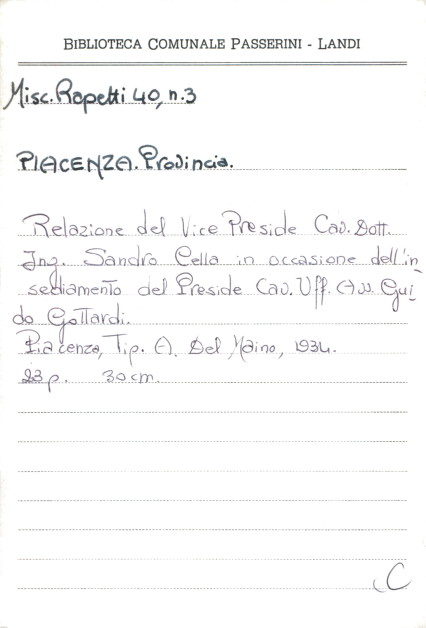 BIBLIOTECA COMUNALE PASSERINI - LANDI
Misc. Rapetti 40, n.3
PIACENZA. Provincia.
Relazione del Vice Preside Cav. Dott.
Ing. Sandro Cella in occasione dell'in
sediamento del Preside Cav. Uff. Avv. Gui
do Gottardi.
Piacenza, Tip. A. Del Maino, 1934.
23 p. 30 cm.
C